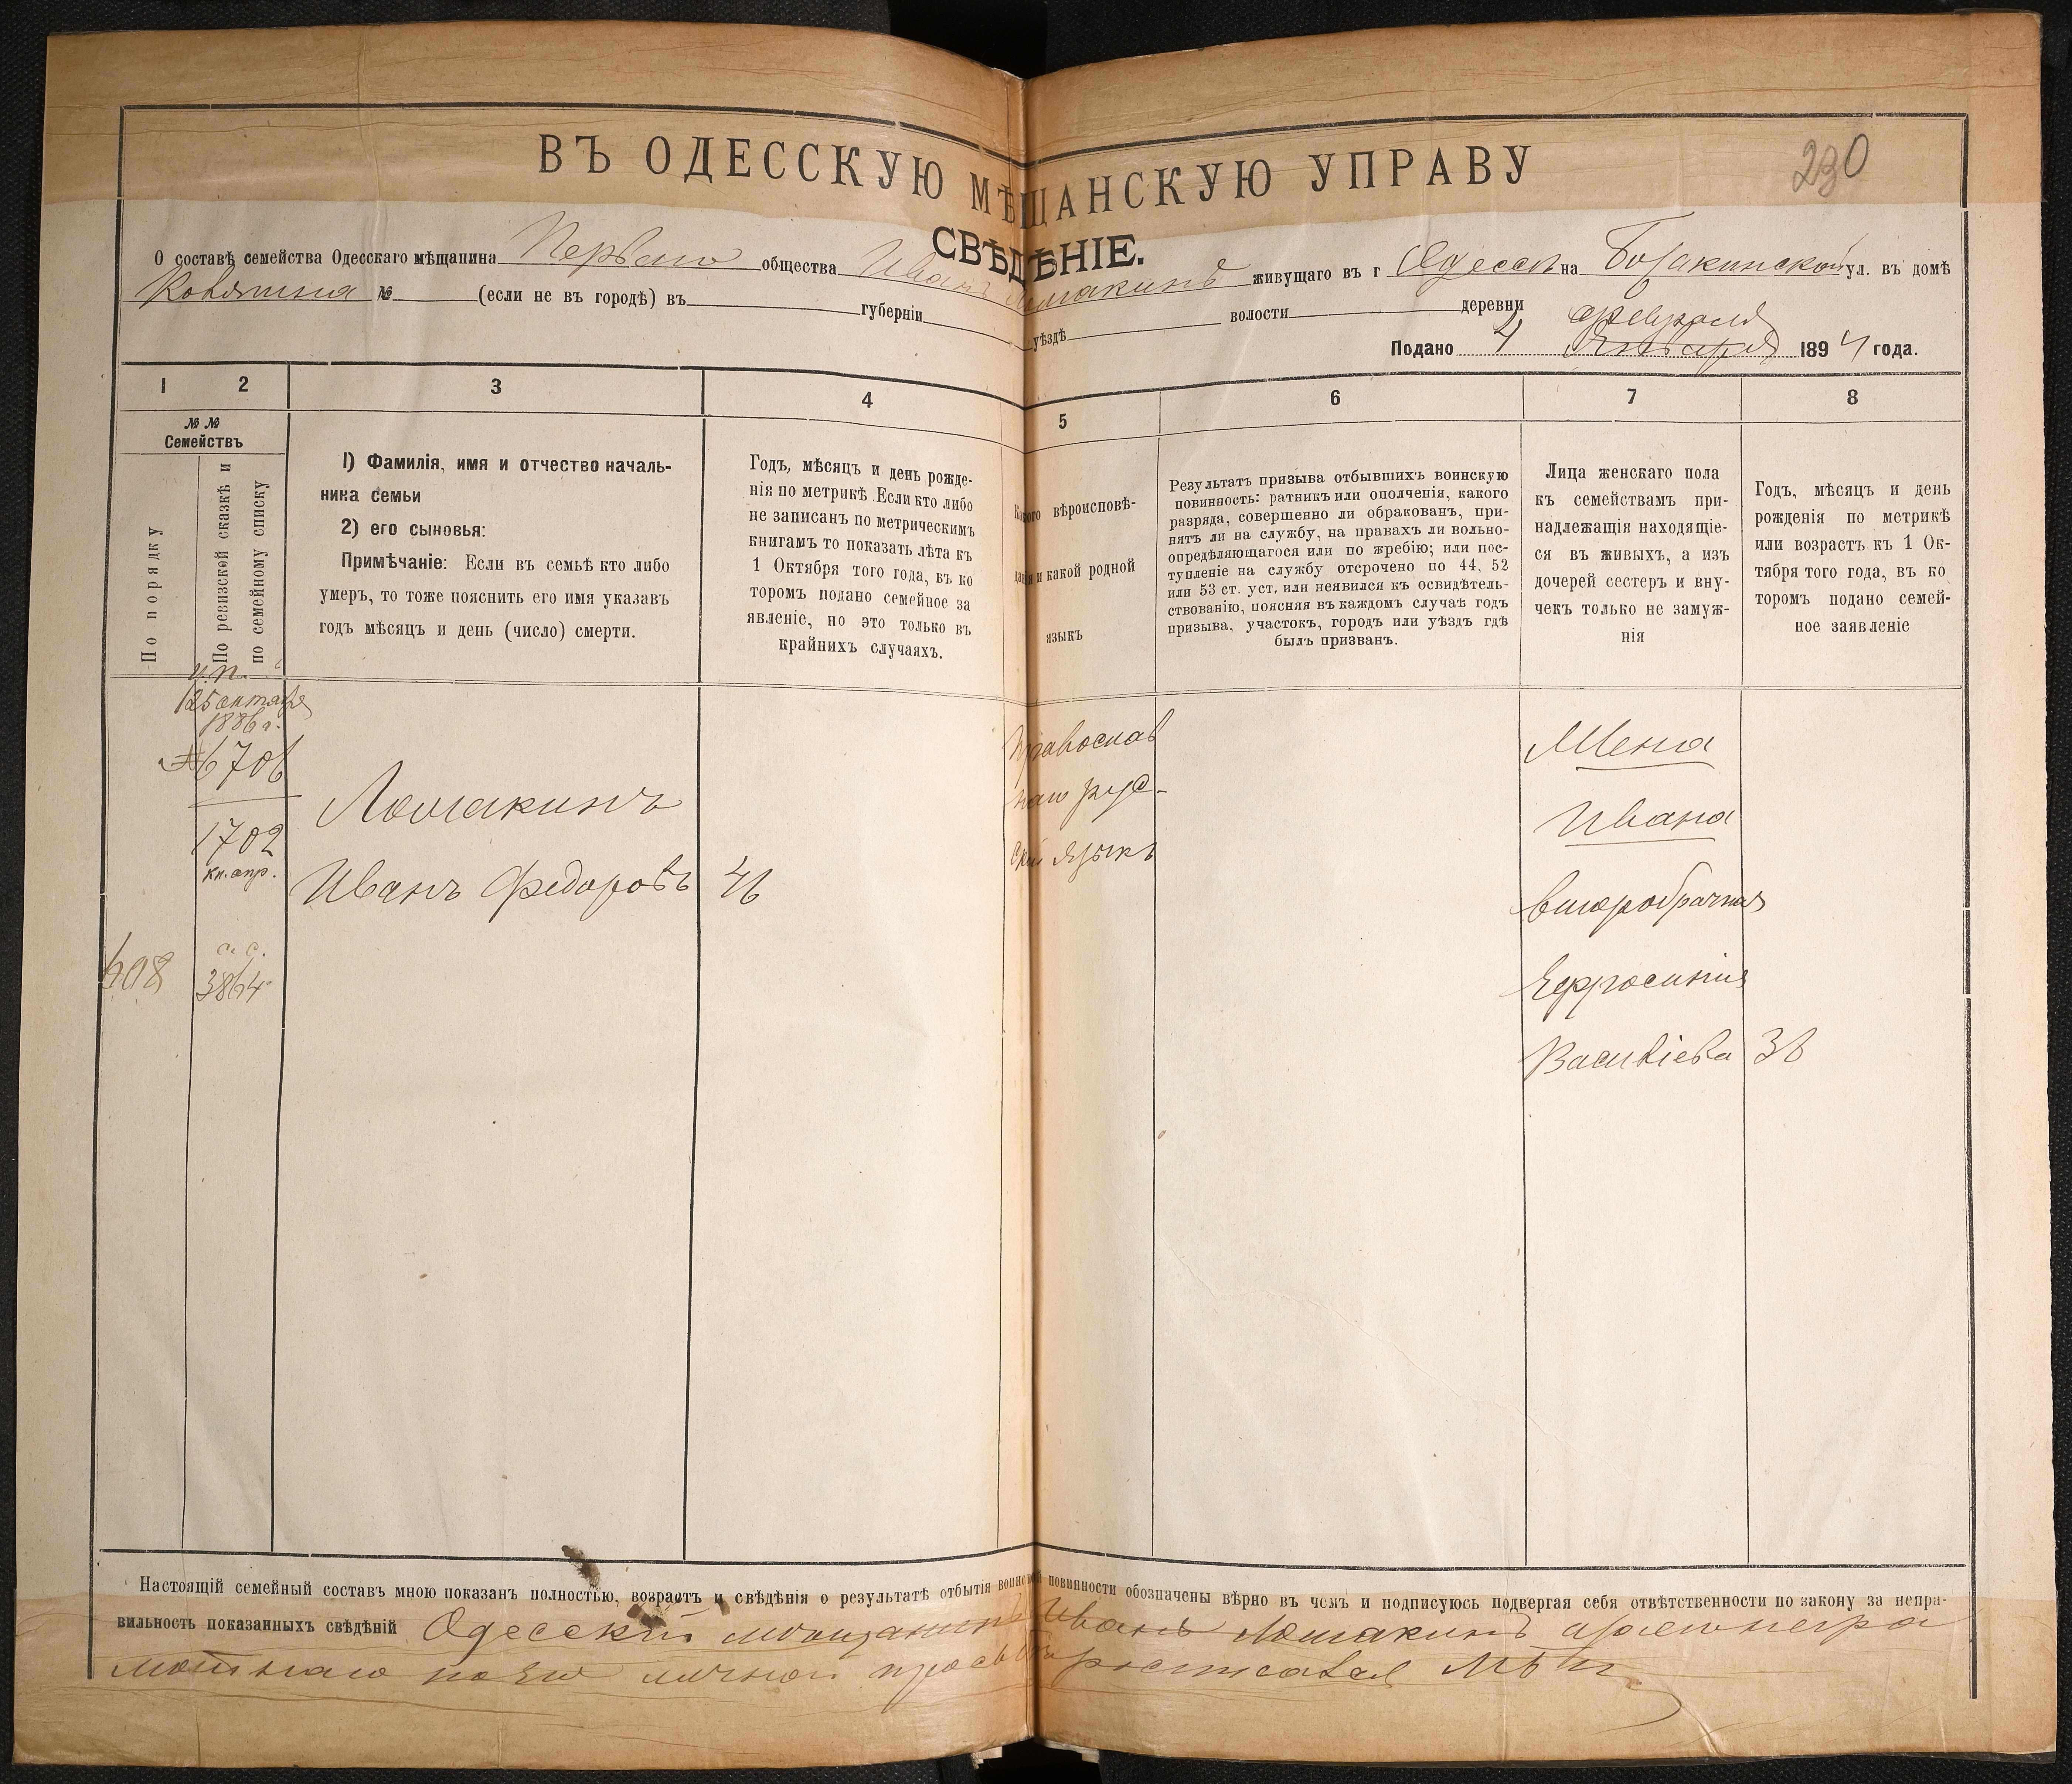 230
ВЪ ОДЕССКУЮ МѢЩАНСКУЮ УПРАВУ
СВѢДѢНІЕ.
О составѣ семейства Одесскаго мѣщанина Перваго общества Иванъ Ломакинъ живущаго въ г Одессѣ на ул. въ домѣ
№ (если не въ городѣ) въ губерніи уѣздѣ волости деревни
февраля
Подано 4 Января 1894 года.
1 2 3 4 5 6 7 8
№ № Семействъ
По порядку
По ревизской сказкѣ и по семейному списку
1) Фамилія, имя и отчество началь-
ника семьи
2) его сыновья:
Примѣчаніе: Если въ семьѣ кто либо
умеръ, то тоже пояснить его имя указавъ
годъ мѣсяцъ и день (число) смерти.
Годъ, мѣсяцъ и день рожде-
нія по метрикѣ Если кто либо
не записанъ по метрическимъ
книгамъ то показать лѣта къ
1 Октября того года, въ ко
торомъ подано семейное за
явленіе, но это только въ
крайнихъ случаяхъ.
Какого вѣроисповѣ-
данія и какой родной
языкъ
Результатъ призыва отбывшихъ воинскую
повинность: ратникъ или ополченія, какого
разряда, совершенно ли обракованъ, при-
нятъ ли на службу, на правахъ ли вольно-
опредѣляющагося или по жребію; или пос-
тупленіе на службу отсрочено по 44, 52
или 53 ст. уст. или неявился къ освидѣтель-
ствованію, поясняя въ каждомъ случаѣ годъ
призыва, участокъ, городъ или уѣздъ гдѣ
былъ призванъ.
Лица женскаго пола
къ семействамъ при-
надлежащія находящіе-
ся въ живыхъ, а изъ
дочерей сестеръ и вну-
чекъ только не замуж-
нія
Годъ, мѣсяцъ и день
рожденія по метрикѣ
или возрастъ къ 1 Ок-
тября того года, въ ко
торомъ подано семей-
ное заявленіе
1886 г.
№ 6706
1702
кн. апр.
608
3864
Ломакинъ
Иванъ Федоровъ 46
Православ
наго рус-
скій языкъ
Жена
Ивана
второбрачная
Ефросинія
Василіева 36
Настоящій семейный составъ мною показанъ полностью, возрастъ и свѣдѣнія о результатѣ отбытія воинской повинности обозначены вѣрно въ чемъ и подписуюсь подвергая себя отвѣтственности по закону за непра-
вильность показанныхъ свѣдѣній Одесскій мѣщанинъ Иванъ Ломакинъ а за него негра
мотнаго по его личной просьбѣ росписался